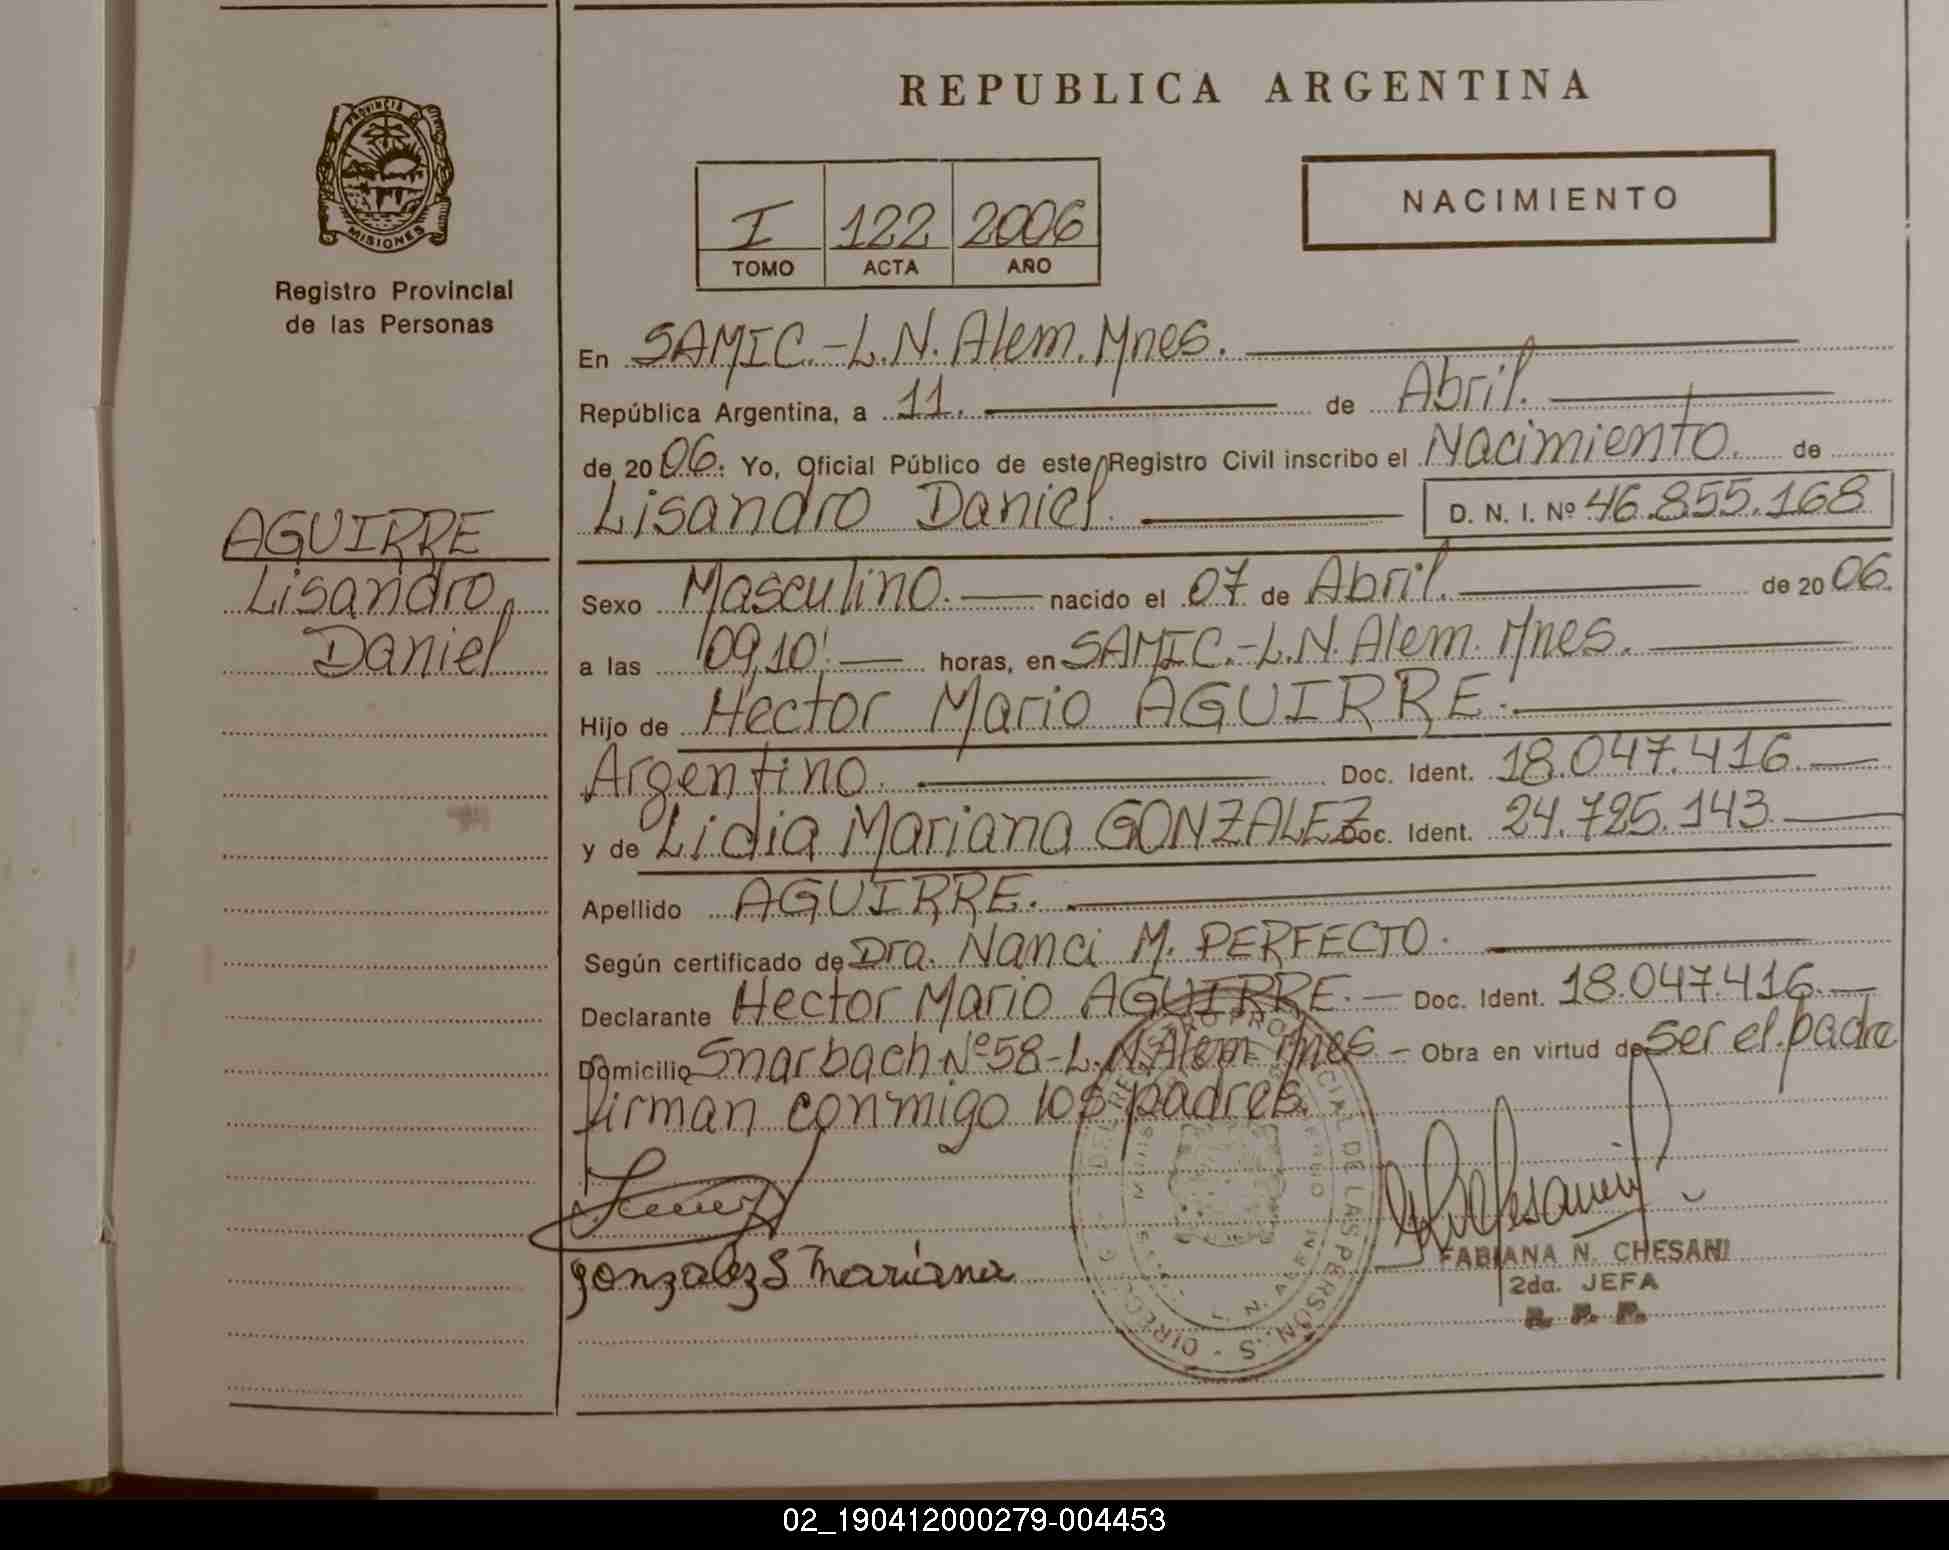 REPUBLICA ARGENTINA
PROVINCIA DE
MISIONES
Registro Provincial
de las Personas
NACIMIENTO
I 122 2006
TOMO ACTA AÑO
En SAMIC.-L.N.Alem.Mnes.
República Argentina, a 11. de Abril.
de 2006. Yo, Oficial Público de este Registro Civil inscribo el Nacimiento. de
Lisandro Daniel. D. N. I. Nº 46.855.168
AGUIRRE
Lisandro
Daniel
Sexo Masculino. nacido el 07 de Abril. de 2006.
a las 09,10' horas, en SAMIC.-L.N.Alem.Mnes.
Hijo de Hector Mario AGUIRRE.
Argentino. Doc. Ident. 18.047.416.
y de Lidia Mariana GONZALEZ Doc. Ident. 24.725.143.
Apellido AGUIRRE.
Según certificado de Dra. Nanci M. PERFECTO.
Declarante Hector Mario AGUIRRE. Doc. Ident. 18.047.416.
Domicilio Snarbach Nº58-L.N.Alem Mnes. Obra en virtud de ser el padre
firman conmigo los padres.
gonzalez S Mariana
FABIANA N. CHESANI
2da. JEFA
R. P. P.
02_190412000279-004453